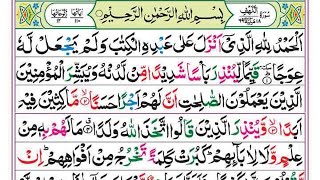 بِسْمِ اللّٰهِ الرَّحْمٰنِ الرَّحِيْمِ
اَلْحَمْدُ لِلّٰهِ الَّذِيْٓ اَنْزَلَ عَلٰى عَبْدِهِ الْكِتٰبَ وَلَمْ يَجْعَلْ لَّهٗ
عِوَجًا ؕ قَيِّمًا لِّيُنْذِرَ بَاْسًا شَدِيْدًا مِّنْ لَّدُنْهُ وَيُبَشِّرَ الْمُؤْمِنِيْنَ
الَّذِيْنَ يَعْمَلُوْنَ الصّٰلِحٰتِ اَنَّ لَهُمْ اَجْرًا حَسَنًا ۙ مَّاكِثِيْنَ فِيْهِ
اَبَدًا ۙ وَّيُنْذِرَ الَّذِيْنَ قَالُوا اتَّخَذَ اللّٰهُ وَلَدًا ۗ مَا لَهُمْ بِهٖ مِنْ
عِلْمٍ وَّلَا لِاٰبَآئِهِمْ ؕ كَبُرَتْ كَلِمَةً تَخْرُجُ مِنْ اَفْوَاهِهِمْ ؕ اِنْ